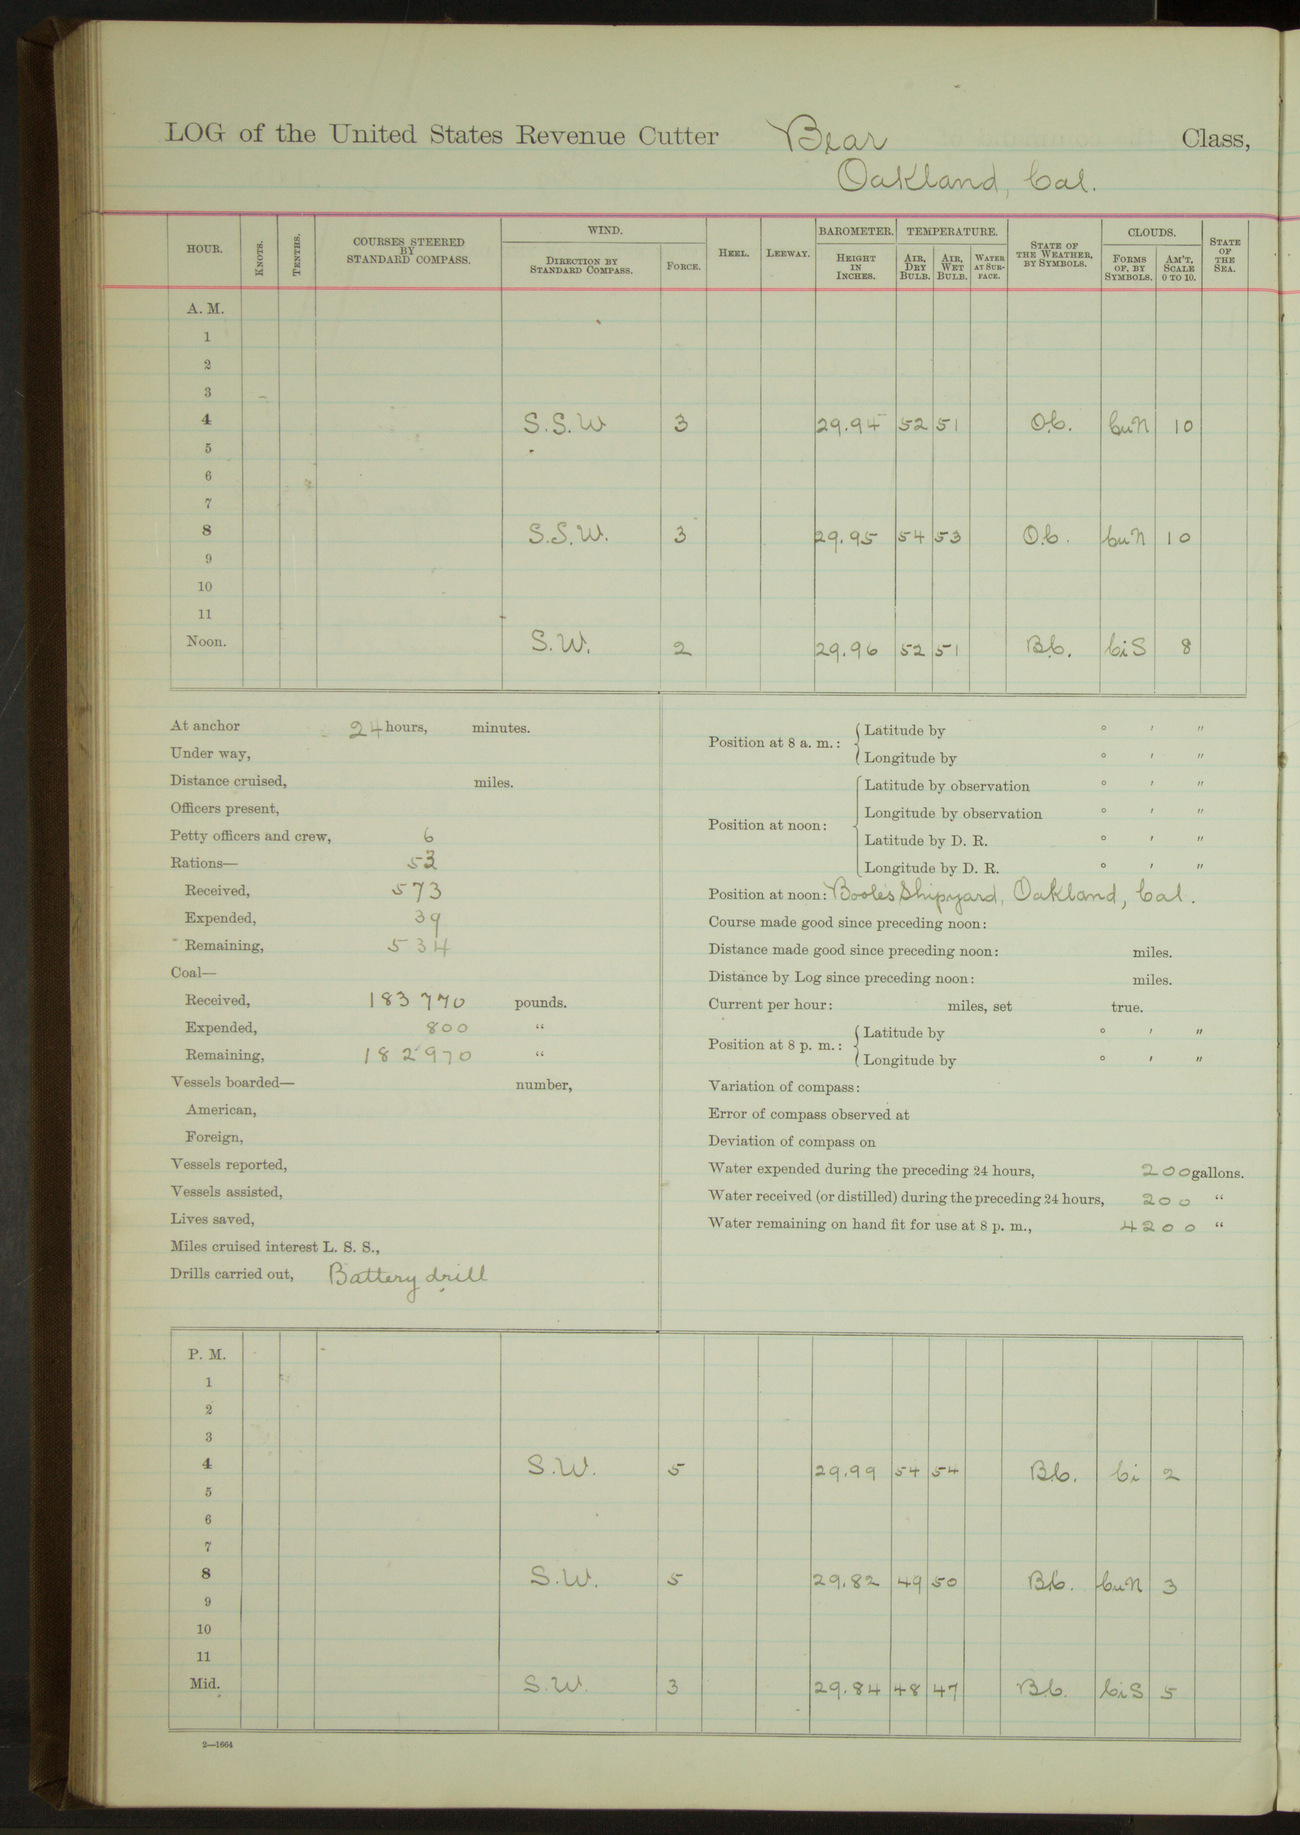 LOG of the United States Revenue Cutter Bear Class,
Oakland, Cal.
HOUR. KNOTS. TENTHS. COURSES STEERED BY STANDARD COMPASS. WIND. DIRECTION BY STANDARD COMPASS. FORCE. HEEL. LEEWAY. BAROMETER. HEIGHT IN INCHES. TEMPERATURE. AIR, DRY BULB. AIR, WET BULB. WATER AT SURFACE. STATE OF THE WEATHER, BY SYMBOLS. CLOUDS. FORMS OF, BY SYMBOLS. AM'T, SCALE 0 TO 10. STATE OF THE SEA.
A. M.
1
2
3
4 S.S.W 3 29.94 52 51 O.C. CuN 10
5
6
7
8 S.S.W. 3 29.95 54 53 O.C. CuN 10
9
10
11
Noon. S.W. 2 29.96 52 51 B.C. CiS 8
At anchor 24 hours, minutes.
Under way,
Distance cruised, miles.
Officers present,
Petty officers and crew, 6
Rations— 53
Received, 573
Expended, 39
Remaining, 534
Coal—
Received, 183770 pounds.
Expended, 800 "
Remaining, 182970 "
Vessels boarded— number,
American,
Foreign,
Vessels reported,
Vessels assisted,
Lives saved,
Miles cruised interest L. S. S.,
Drills carried out, Battery drill
Position at 8 a. m.: Latitude by ° ′ ″
Longitude by ° ′ ″
Position at noon: Latitude by observation ° ′ ″
Longitude by observation ° ′ ″
Latitude by D. R. ° ′ ″
Longitude by D. R. ° ′ ″
Position at noon: Boole's Shipyard, Oakland, Cal.
Course made good since preceding noon:
Distance made good since preceding noon: miles.
Distance by Log since preceding noon: miles.
Current per hour: miles, set true.
Position at 8 p. m.: Latitude by ° ′ ″
Longitude by ° ′ ″
Variation of compass:
Error of compass observed at
Deviation of compass on
Water expended during the preceding 24 hours, 200 gallons.
Water received (or distilled) during the preceding 24 hours, 200 "
Water remaining on hand fit for use at 8 p. m., 4200 "
P. M.
1
2
3
4 S.W. 5 29.99 54 54 B.C. Ci 2
5
6
7
8 S.W. 5 29.82 49 50 B.C. CuN 3
9
10
11
Mid. S.W. 3 29.84 48 47 B.C. CiS 5
2—1664